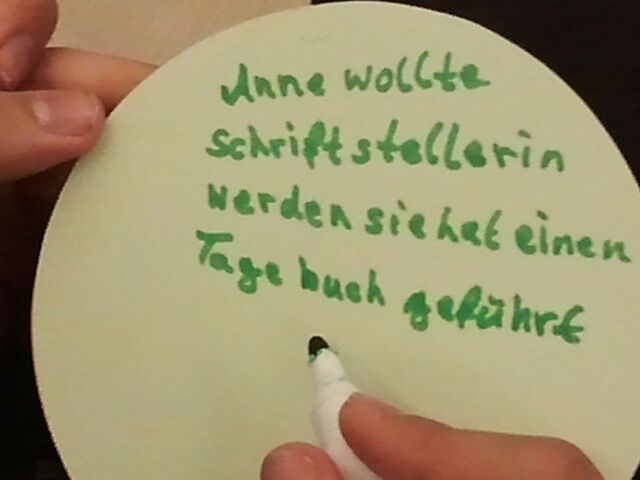 Anne wollte
Schriftstellerin
werden sie hat einen
Tage buch geführt